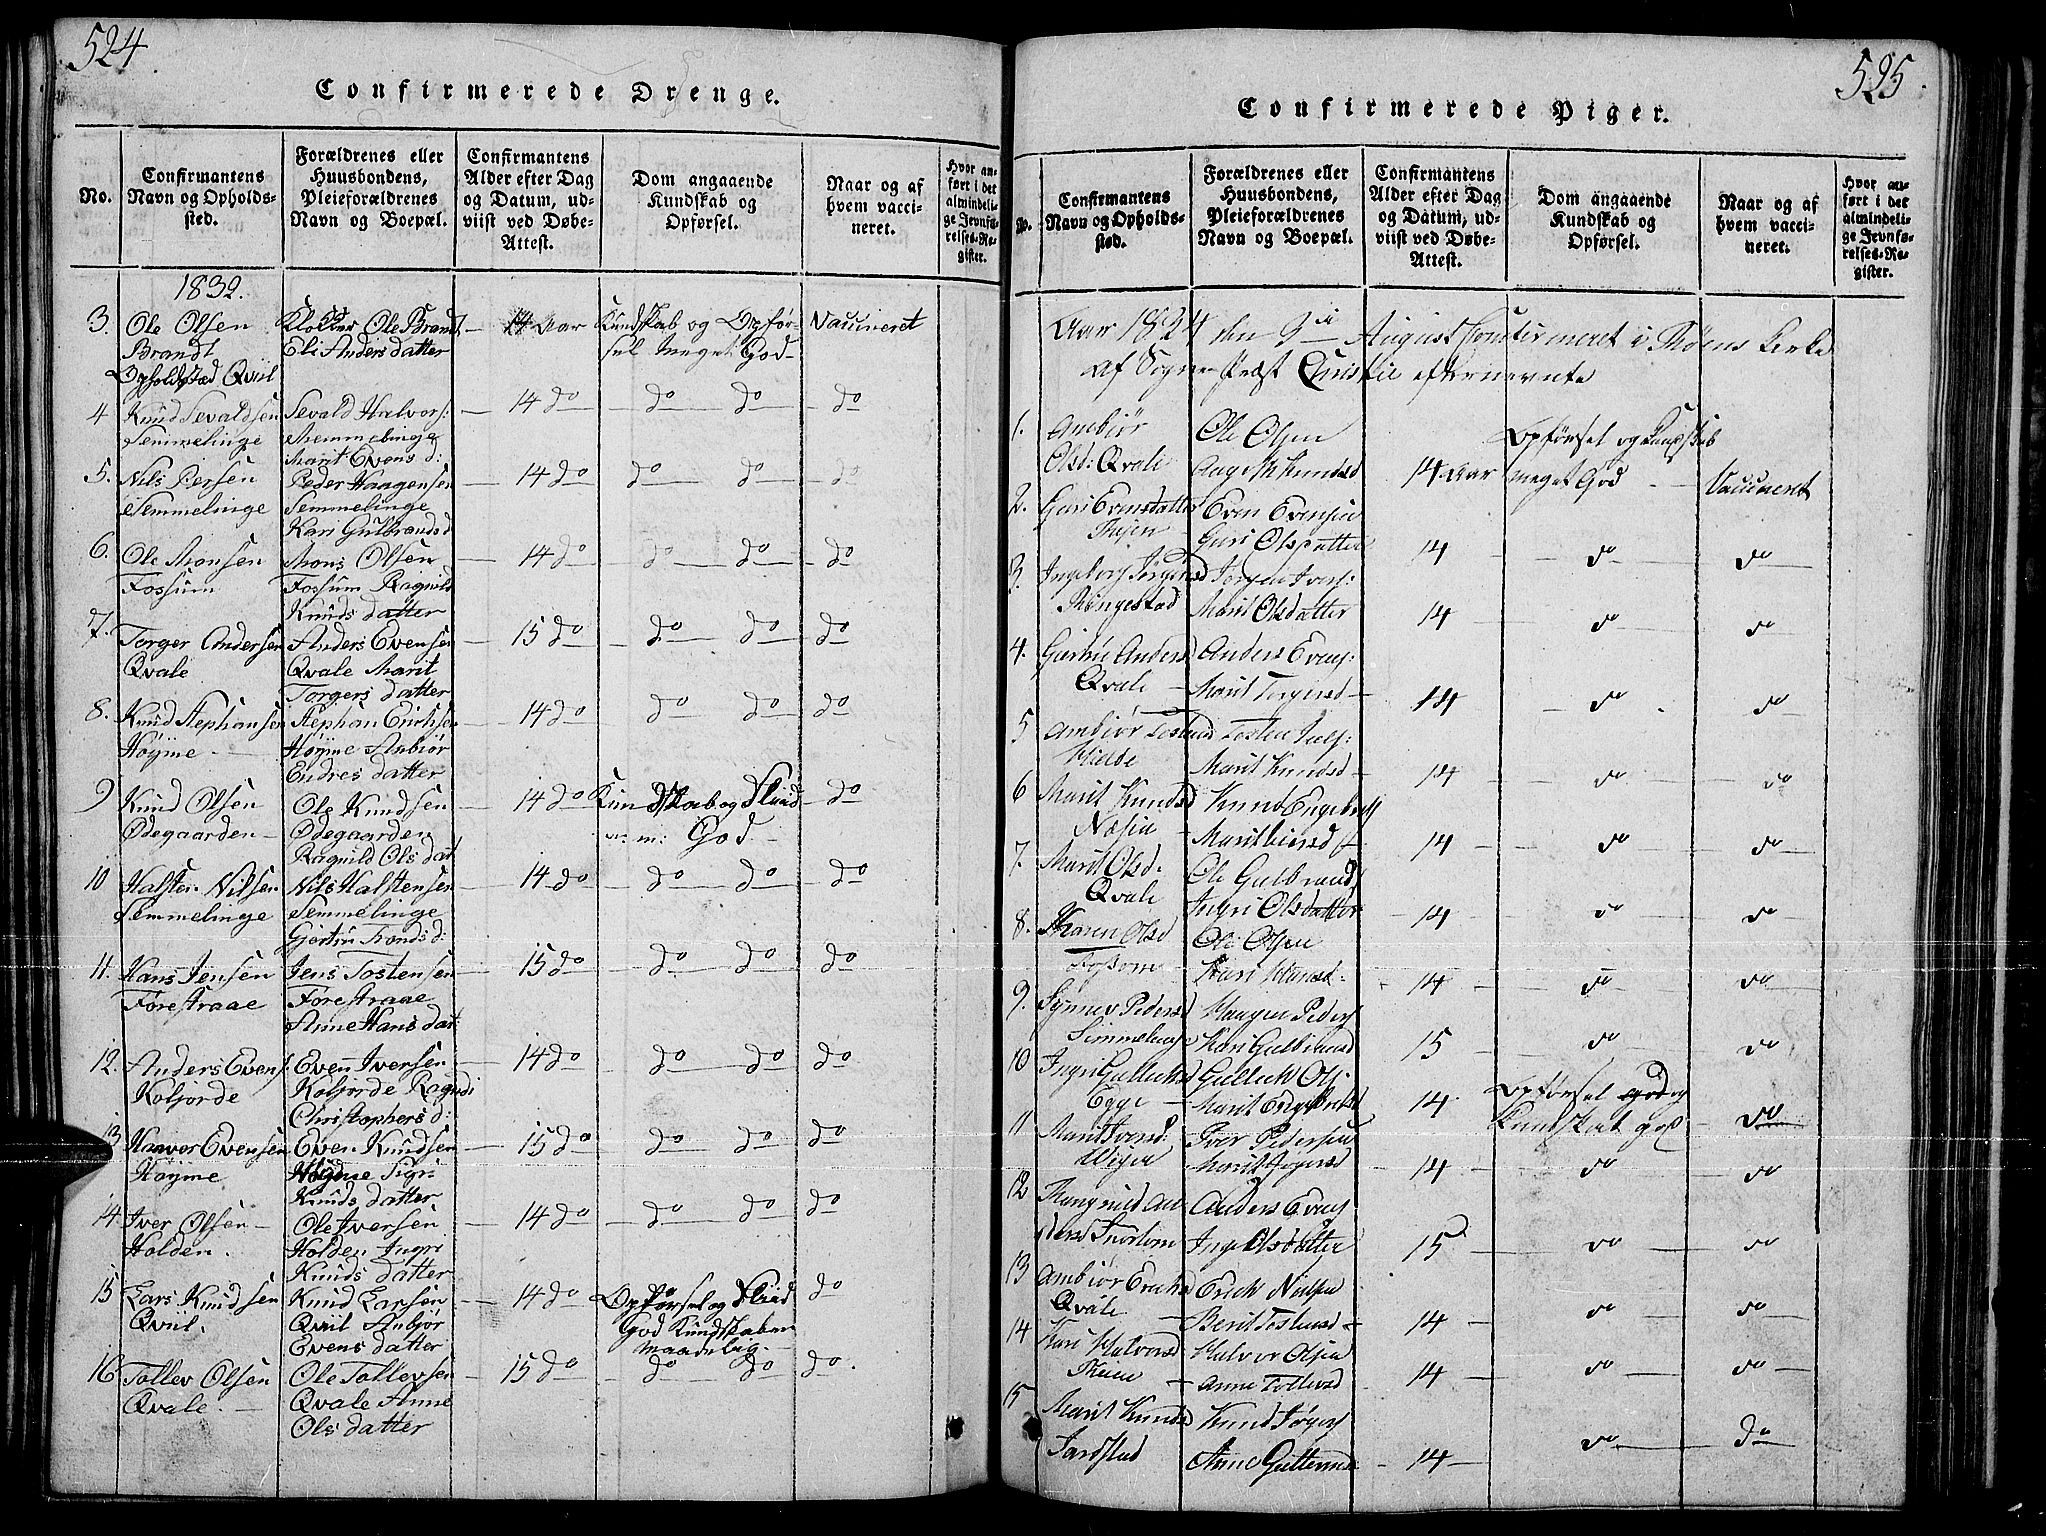 524
Confirmerede Drenge.
No.
Confirmantens Navn og Opholdssted.
Forældrenes eller Huusbondens, Pleieforældrenes Navn og Boepæl.
Confirmantens Alder efter Dag og Datum, udviist ved Døbe-Attest.
Dom angaaende Kundskab og Opførsel.
Naar og af hvem vaccineret.
Hvor anført i det almindelige Jevnførelses-Register.
1832.
3. Ole Olsen Klokker Ole Brandt — 14 Aar Kundskab og Opfør- Vaccineret
Brandt Eli Anders datter sel meget God —
Opholdstæd Qviil
4 Knud Sevaldsen Sevald Halvors: — 14 do — do do — do
Semmelinge Semmelinge
Marit Evens d:
5. Nils Persen Peder Haagensen — 14 do do do do
Semmelinge Semmelinge
Kari Gulbrands d
6. Ole Monsen Mons Olsen — 14 do do do do
Fossum Fossum Ragnild
Knuds datter
7. Torger Andersen Anders Evensen — 15 do do do do
Qvale Qvale Marit
Torgers datter
8. Knud Stephansen Stephan Erichsen 14 do do do do
Høyme — Høyme Anbiør
Endres datter
9 Knud Olsen Ole Knudsen — 14 do Kundskab og Fliid — do
Ødegaarden — Ødegaarden m: God —
Ragnild Ols dat
10 Halsten Nilsen Nils Halstensen — 14 do — do do — do
Semmelinge Semmelinge
Gjertru Tronds d:
11. Hans Jensen Jens Tostensen — 15 do do do do
Forestraae Forestraae
Anne Hans dat:
12. Anders Evens: Even Iversen — 14 do do do do
Koljorde Koljorde
Christophers d:
13 Haavor Evensen Even Knudsen — 15 do do do do
Høyme Høyme Sigri
Knuds datter
14. Iver Olsen — Ole Iversen — 14 do — do do do
Holden. Holden Ingri
Knuds datter
15 Lars Knudsen Knud Larsen — 14 do Opførsel og Fliid do
Qviil. Qviil Anbjør God Kundskaben
Evens datter maadelig. —
16 Tollev Olsen Ole Tollevsen — 15 do — do do do.
Qvale. — Qvale Anne
Ols datter
525.
Confirmerede Piger.
No.
Confirmantens Navn og Opholdssted.
Forældrenes eller Huusbondens, Pleieforældrenes Navn og Boepæl.
Confirmantens Alder efter Dag og Datum, udviist ved Døbe-Attest.
Dom angaaende Kundskab og Opførsel.
Naar og af hvem vaccineret.
Hvor anført i det almindelige Jevnførelses-Register.
Aar 1824 den August Confirmeret i Kirke
af Sogne Præst Christie efternevnte
1. Ambiør Ole Olsen Opførsel og Kundskab
Olsd: Qvale Knudsd 14 Aar meget God — Vaccineret
2. Guri Evensdatter Even Evensen
Guri Olsdatter 14 — do — do
3. Ingebor Jørgensd Jørgen Ivers:
Ringestad Marit Olsdatter 14 — do — do
4. Gertrue Anders Anders Evens:
Qvale — Marit Torgersd — 14 — do do
5 Ambiør Tostensd Tosten
Marit Knudsd — 14 — do — do
6 Marit Knudsd Knud Engebrets
14 — do — do
7. Marit Olsd: Ole Gulbrands
Qvale Ingri Olsdatter — 14 — do do
8. Karen Olsd Ole Olsen
Fossom Kari 14 — do — do
9. Synnev Pedersd Haagen Peders
Semmelinge Kari Gulbransd 15 do do
10 Ingri Gullicksd Gullick Ols: Opførsel god og
Egge — Marit Engebretsd 14. Kundskab god — do
11 Marit Iversd: Iver Pedersen
Marit — 14 — do do
12 Rangnild An- Anders Evens
dersd Inge Olsdatter 15 — do do
13 Ambiør Erichsd Erich Nielsen
Qvale — Berit Tostensd — 14 do do
14 Kari Halvorsd Halvor Olsen
— Anne Tollevsd — 14 — do do
15 Marit Knudsd Knud
Anne — 14 — do do